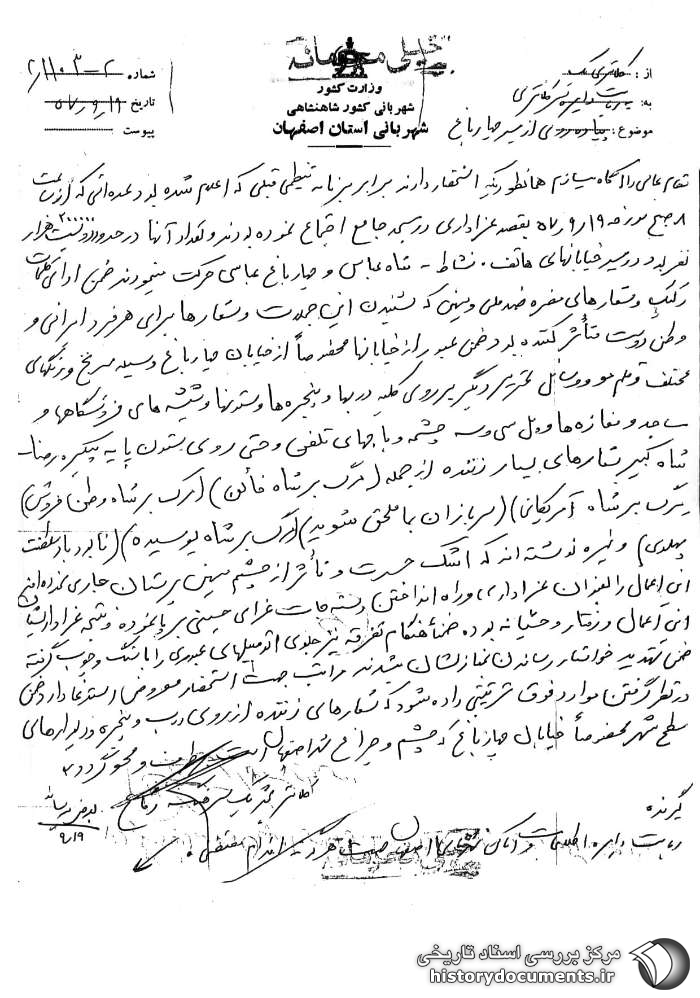 خیلی محرمانه
وزارت کشور
شهربانی کشور شاهنشاهی
شهربانی استان اصفهان
از : کلانتری یک
به: ریاست دایره سرکلانتری
موضوع: پیاده روی از مسیر چهارباغ
شماره ۲-۰۳-۱۱/۲
تاریخ ۵۷/۹/۱۹
پیوست
مقام عالی را آگاه میسازم همانطوریکه استحضار دارند برابر برنامه تنظیمی قبلی که اعلام شده بود عده‌ای که از ساعت
۸ صبح مورخه ۵۷/۹/۱۹ بقصد عزاداری در مسجد جامع اجتماع نموده بودند و تعداد آنها در حدود ۲۰۰۰۰۰ دویست هزار
نفر بود در مسیر خیابانهای هاتف . نشاط - شاه عباس و چهارباغ عباسی حرکت مینمودند ضمن ادای کلمات
رکیک و شعارهای مضره ضد ملی و میهنی که شنیدن این جملات و شعارها برای هر فرد ایرانی و
وطن دوست متأثر کننده بود و ضمن عبور از خیابانها مخصوصاً از خیابان چهارباغ وسیله سرنج و رنگهای
مختلف و قلم مو و وسایل تحریر دیگر بر روی کلیه دربها و پنجره‌ها و ستونها و شیشه‌های فروشگاهها و
مساجد و مغازه‌ها و پل سی و سه چشمه و باجه‌های تلفن و حتی روی ستون پایه پیکره رضا
شاه کبیر شعارهای بسیار زننده از جمله (مرگ بر شاه خائن) (مرگ بر شاه وطن فروش)
(مرگ بر شاه آمریکائی) (سربازان بما ملحق شوید) (مرگ بر شاه پوسیده) (نابود باد سلطنت
پهلوی) و غیره نوشته‌اند که اشک حسرت و تأثر از چشم میهن پرستان جاری نموده این
این اعمال را بعنوان عزاداری و راه انداختن دسته جات عزای حسینی بر پا نموده و نتیجه عزاداریشان
این اعمال و رفتار وحشیانه بوده ضمناً هنگام تفرقه نیز جلوی اتومبیلهای عبوری را با سنگ و چوب گرفته
ضمن تهدید خواستار رساندن بمنازلشان شدند مراتب جهت استحضار معروض استدعا دارد ضمن
در نظر گرفتن موارد فوق ترتیبی داده شود که شعارهای زننده از روی درب و پنجره و دیوارهای
سطح شهر مخصوصاً خیابان چهارباغ که چشم و چراغ شهر اصفهان است برطرف و محو گردد
کلانتر یک سرهنگ
۹/۱۹
گیرنده
ریاست دایره اطلاعات و اماکن شهربانی اصفهان جهت هرگونه اقدام مقتضی .
مرکز بررسی اسناد تاریخی
historydocuments.ir